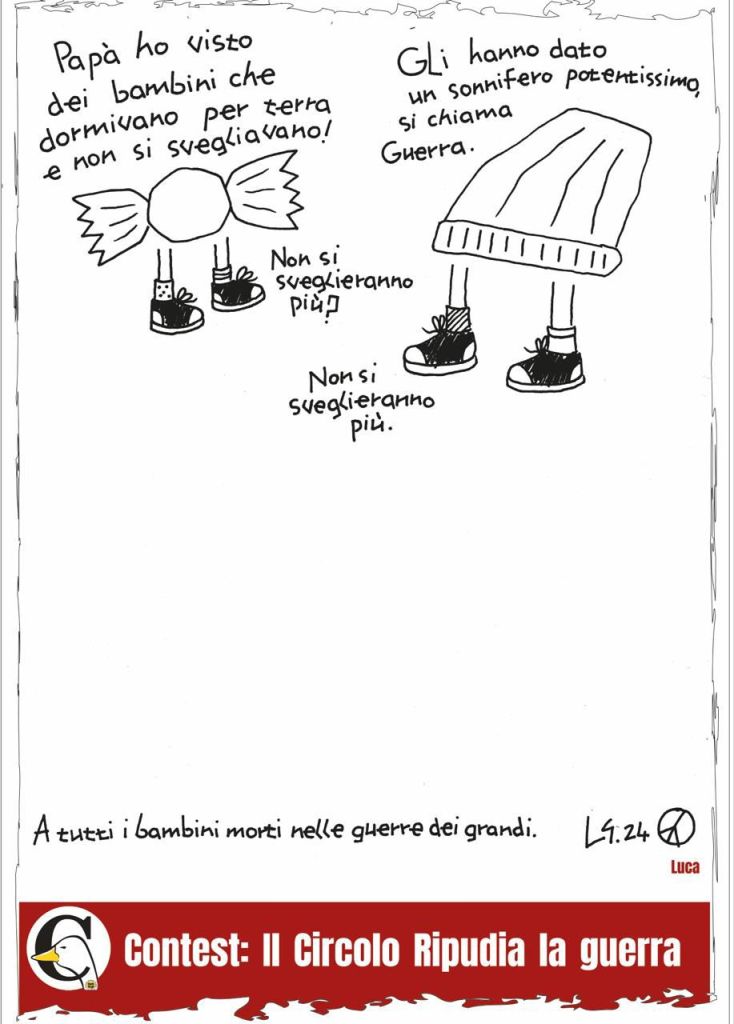 Papà ho visto
dei bambini che
dormivano per terra
e non si svegliavano!
Gli hanno dato
un sonnifero potentissimo,
si chiama
Guerra.
Non si
sveglieranno
più?
Non si
sveglieranno
più.
A tutti i bambini morti nelle guerre dei grandi.
LG.24
Luca
C
Contest: Il Circolo Ripudia la guerra